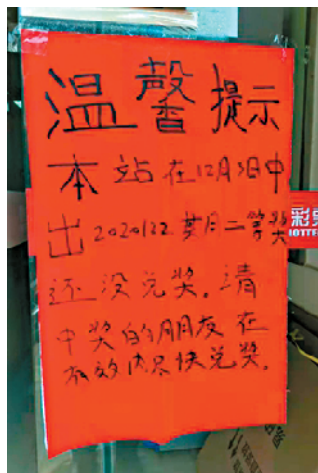 温馨提示
本站在12月3日中
出2020122.期二等奖
还没兑奖.请
中奖的朋友在
有效内尽快兑奖.
彩